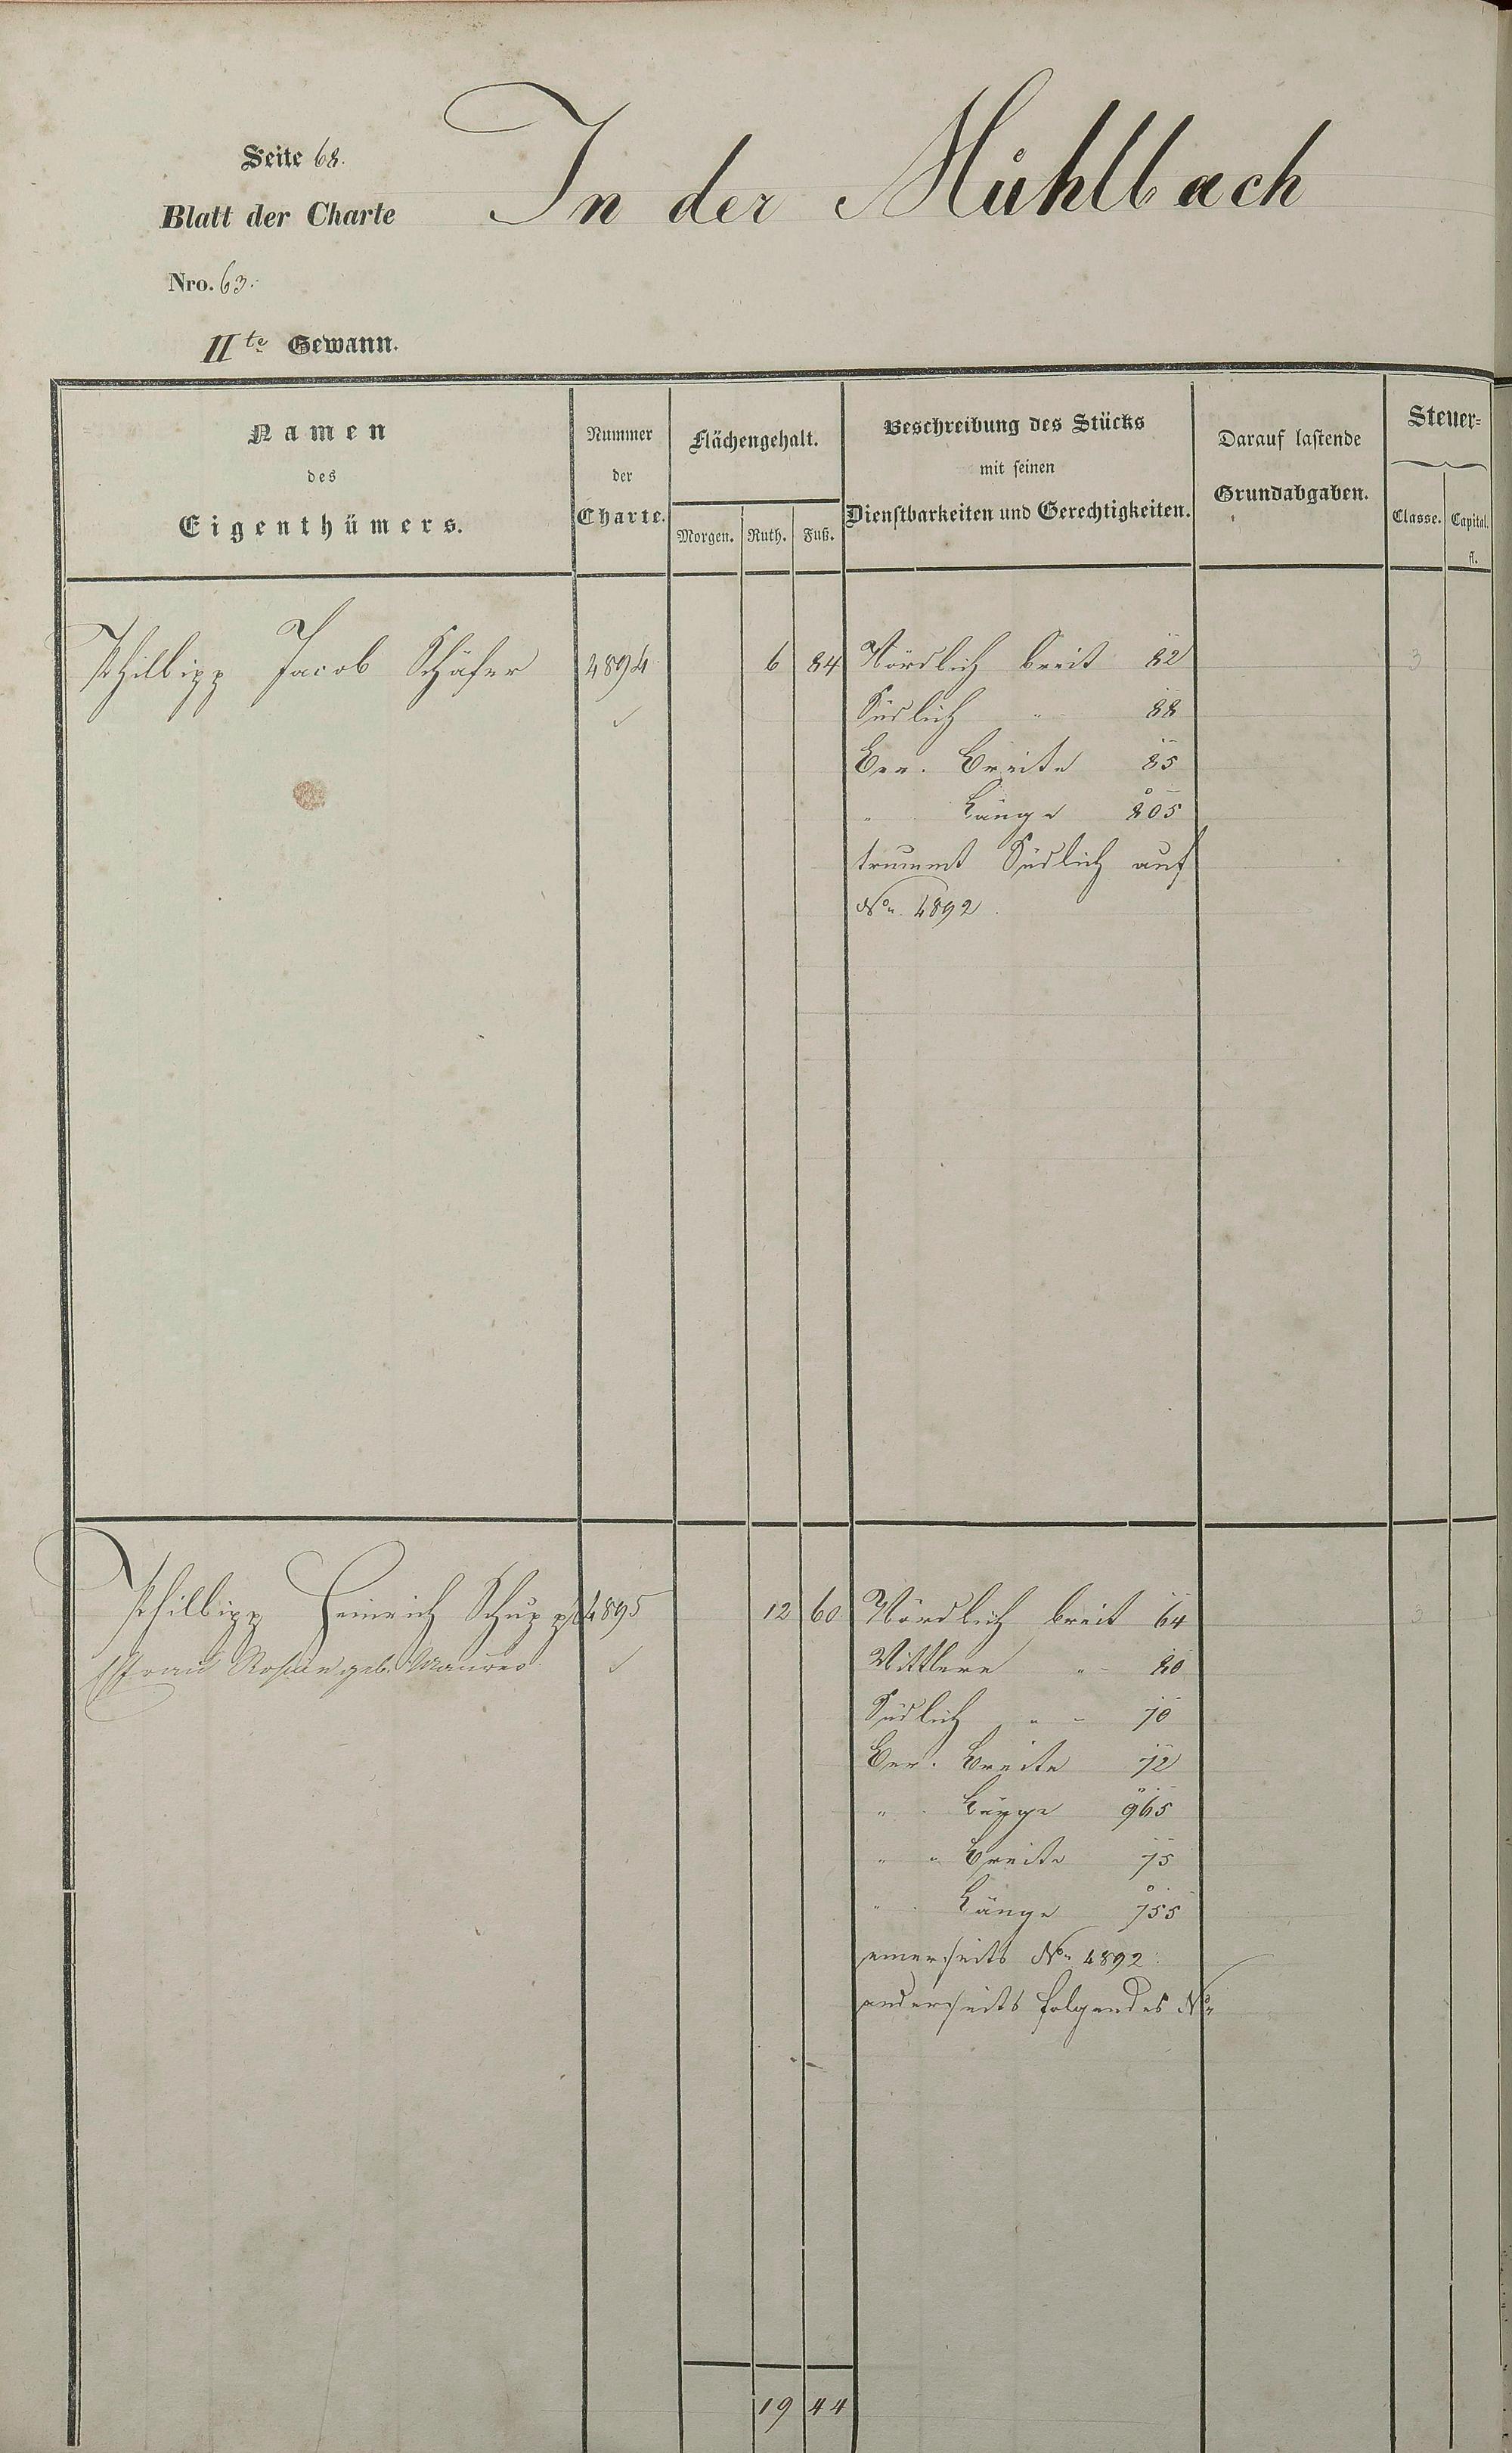 Seite 68.
In der Mühlbach
Blatt der Charte
Nro. 63.
IIte Gewann.
Namen
des
Eigenthümers.
Nummer
der
Charte.
Flächengehalt.
Morgen. Ruth. Fuß.
Beschreibung des Stücks
mit seinen
Dienstbarkeiten und Gerechtigkeiten.
Darauf lastende
Grundabgaben.
Steuer-
Classe. Capital.
fl.
Philipp Jacob Schäfer 4894 6 84 Nördlich breit 82 3
✓ Südlich " 88
Ver. Breite 85
" Länge 805
trummt Südlich auf
No. 4892.
Philipp Heinrich Schupp 4895 12 60 Nördlich breit 64 3
Ehefrau Rosine geb. Maurer ✓ Mittlere " 80
Südlich " 70
Ver. Breite 72
" Länge 965
" " Breite 75
" Länge 755
einerseits No. 4892.
anderseits folgendes No.
19 44